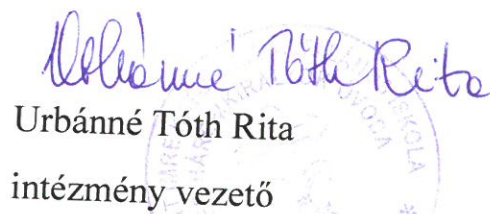 Urbánné Tóth Rita
Urbánné Tóth Rita
intézmény vezető